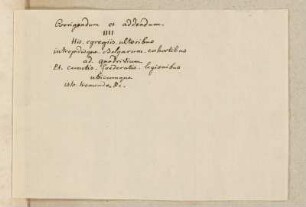 Corrigendum et addendum.
His egregiis ultoribus
intrepidisque Belgarum cohortibus
ad quadrivium
Et cunctis foederatis legionibus
ubicumque